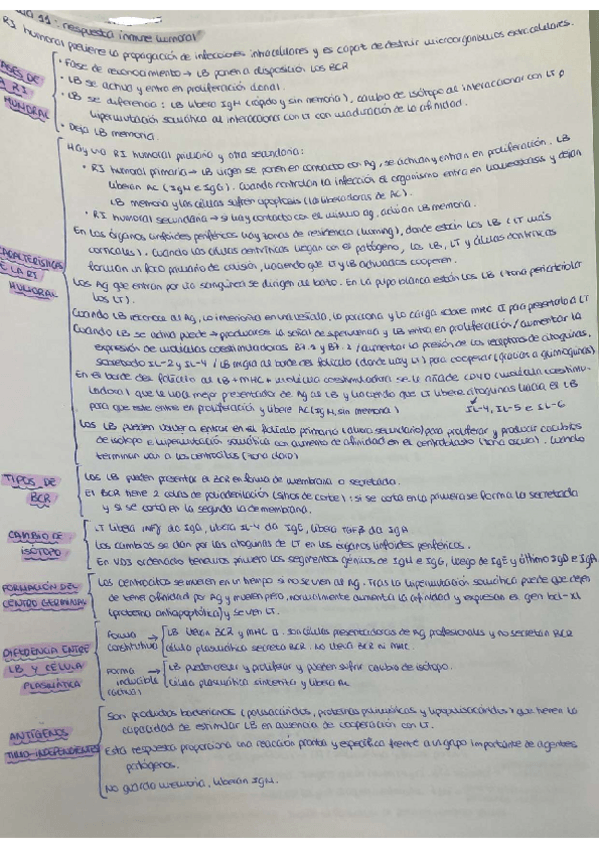 11: respuesta inmune humoral
RI humoral previene la propagación de infecciones intracelulares y es capaz de destruir microorganismos extracelulares.
FASES DE
LA RI
HUMORAL
• Fase de reconocimiento → LB ponen a disposición los BCR
• LB se activa y entra en proliferación clonal.
• LB se diferencia: LB libera IgM (rápido y sin memoria), cambio de isotopo al interaccionar con LT e
hipermutación somática al interaccionar con LT con maduración de la afinidad.
• Deja LB memoria.
CARACTERÍSTICAS
DE LA RI
HUMORAL
Hay una RI humoral primaria y otra secundaria:
• RI humoral primaria → LB virgen se ponen en contacto con Ag, se activan y entran en proliferación. LB
liberan AC (IgM e IgG). Cuando controlan la infección el organismo entra en homeostasis y dejan
LB memoria y las células sufren apoptosis (la liberadoras de AC).
• RI humoral secundaria → si hay contacto con el mismo ag, actúan LB memoria.
En los órganos linfoides periféricos hay zonas de residencia (homing), donde están los LB (LT más
corticales). Cuando las células dentríticas llegan con el patógeno, los LB, LT y células dentríticas
forman un foro primario de colusión, haciendo que LT y LB activados cooperen.
Los Ag que entran por vía sanguínea se dirigen al bazo. En la pulpa blanca están los LB (zona periarteriolar
los LT).
Cuando LB reconoce al Ag, lo interioriza en una vesícula, lo procesa y lo carga sobre MHC II para presentarlo a LT
Cuando LB se activa puede → producirse la señal de supervivencia y LB entra en proliferación / aumentar la
expresión de moléculas coestimuladoras B7.1 y B7.2 / aumentar la presión de los receptores de citoquinas,
sobretodo IL-2 y IL-4 / LB migra al borde del folículo (donde hay LT) para cooperar (gracias a quimioquinas)
En el borde del folículo al LB + MHC + molécula coestimuladora se le añade CD40 (molécula coestimu-
ladora) que le hace mejor presentador de Ag al LB y haciendo que LT libere citoquinas hacia el LB
para que este entre en proliferación y libere AC (IgM, sin memoria) IL-4, IL-5 e IL-6
Los LB pueden volver a entrar en el folículo primario (ahora secundario) para proliferar y producir cambios
de isotopo e hipermutación somática con aumento de afinidad en el centroblasto (zona oscura). Cuando
terminan van a los centrocitos (zona clara)
TIPOS DE
BCR
Los LB pueden presentar el BCR en forma de membrana o secretada.
El BCR tiene 2 colas de poliadenilación (sitios de corte): si se corta en la primera se forma la secretada
y si se corta en la segunda la de membrana.
CAMBIO DE
ISOTOPO
LT libera INFγ da IgG, libera IL-4 da IgE, libera TGFβ da IgA.
Los cambios se dan por las citoquinas de LT en los órganos linfoides periféricos.
En VDJ ordenado tenemos primero los segmentos génicos de IgM e IgG, luego de IgE y último IgD e IgA
FORMACIÓN DEL
CENTRO GERMINAL
Los centrocitos se mueren en un tiempo si no se unen al Ag. Tras la hipermutación somática puede que dejen
de tener afinidad por Ag y mueren pero, normalmente aumenta la afinidad y expresan el gen bcl-xl
(proteína antiapoptótica) y se ven LT.
DIFERENCIA ENTRE
LB Y CÉLULA
PLASMÁTICA
Forma
constitutiva → LB tienen BCR y MHC II. Son células presentadoras de Ag profesionales y no secretan BCR
célula plasmática secreta BCR. No lleva BCR ni MHC.
Forma
inducible
(activa) → LB pueden crecer y proliferar y pueden sufrir cambio de isotopo.
Célula plasmática sintetiza y libera Ac
ANTÍGENOS
TIMO-INDEPENDIENTES
Son productos bacterianos (polisacáridos, proteínas poliméricas y lipopolisacáridos) que tienen la
capacidad de estimular LB en ausencia de cooperación con LT.
Esta respuesta proporciona una reacción pronta y específica frente a un grupo importante de agentes
patógenos.
No guarda memoria, liberan IgM.